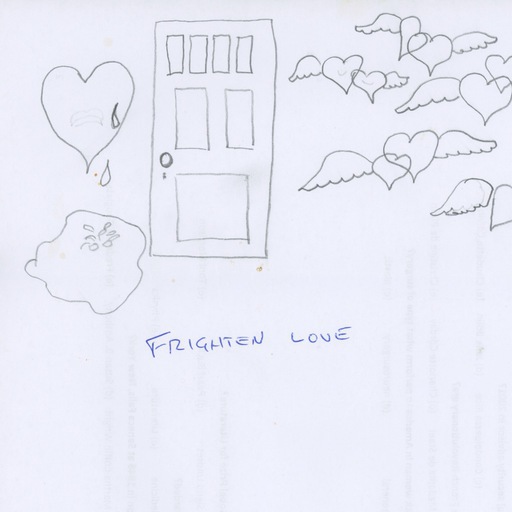 FRIGHTEN LOVE